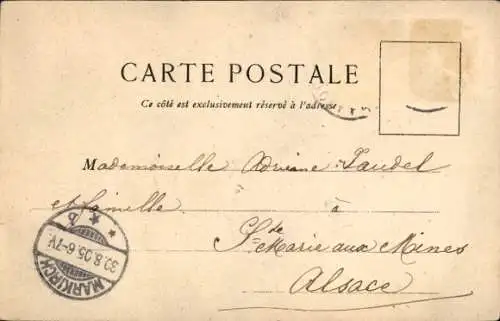 CARTE POSTALE
Ce côté est exclusivement réservé à l'adresse
Mademoiselle Adrienne Vaudel
et famille
à
Ste Marie aux Mines
Alsace
MARKIRCH
30.8.05.6-7V.
b